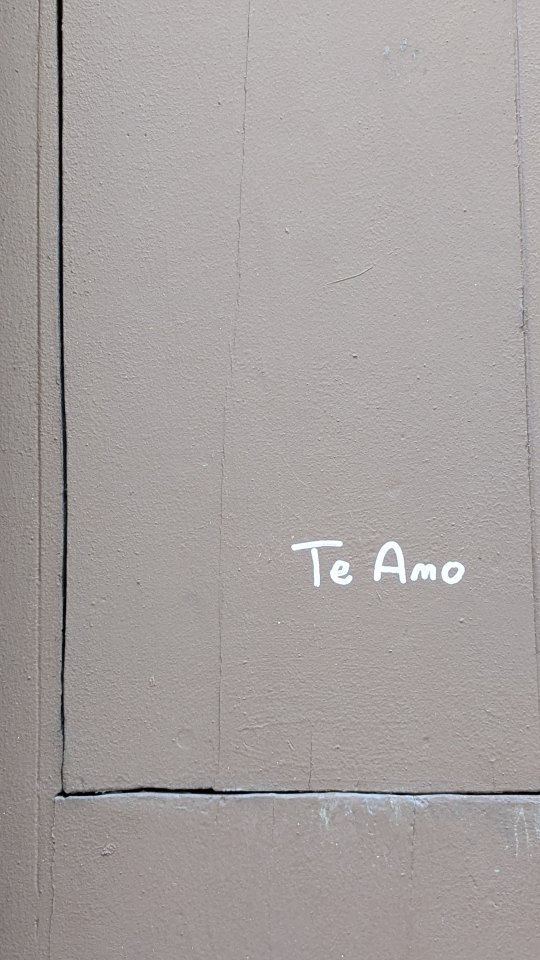 Te Amo